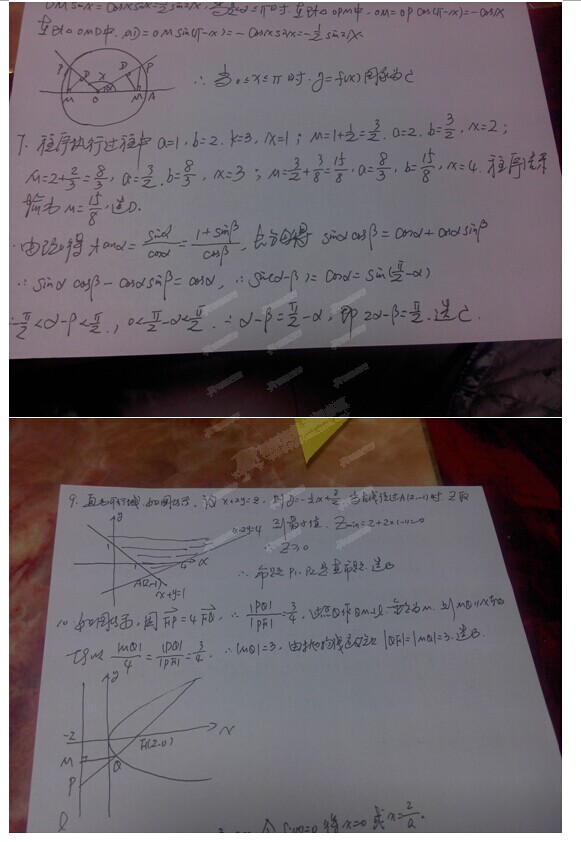 OM sinx = cosx sinx = ½ sin2x, <x≤π时, 在Rt△OPM中, OM=OP cos(π-x)=-cosx
在Rt△OMD中, MD=OM sin(π-x)=-cosx sinx=-½ sin2x,
P D x D P
M O M A
∴ 当0≤x≤π时, y=f(x)图象为C
7. 程序执行过程中 a=1, b=2, k=3, n=1; M=1+½=3/2, a=2, b=3/2, n=2;
M=2+2/3=8/3, a=3/2, b=8/3, n=3; M=3/2+3/8=15/8, a=8/3, b=15/8, n=4. 程序结束
输出M=15/8, 选D.
由 得tanα=sinα/cosα=(1+sinβ)/cosβ, 得 sinα cosβ=cosα+cosα sinβ
∴ sinα cosβ-cosα sinβ=cosα, ∴ sin(α-β)=cosα=sin(π/2-α)
-π/2<α-β<π/2, 0<π/2-α<π/2, ∴ α-β=π/2-α, 即 2α-β=π/2. 选C.
9. 画出可行域, 如图所示, 设x+2y=z, 则y=-½x+z/2, 当直线经过A(2,-1)时 z取
y x-2y=4 到最小值, Zmin=2+2×(-1)=0
1 1 4 x ∴ Z≥0
A(2,-1) ∴ 命题P1, P2是真命题. 选B
x+y=1
10 如图所示, 因 FP=4FQ, ∴ |PQ|/|PF|=3/4, 过点Q作QM⊥l 垂足为M, 则MQ∥x轴
所以 |MQ|/4=|PQ|/|PF|=3/4, ∴ |MQ|=3, 由抛物线定义知 |QF|=|MQ|=3. 选B.
y
-2 F(2,0) x
M Q
P
l
=0 得 x=0 或 x=2/a.